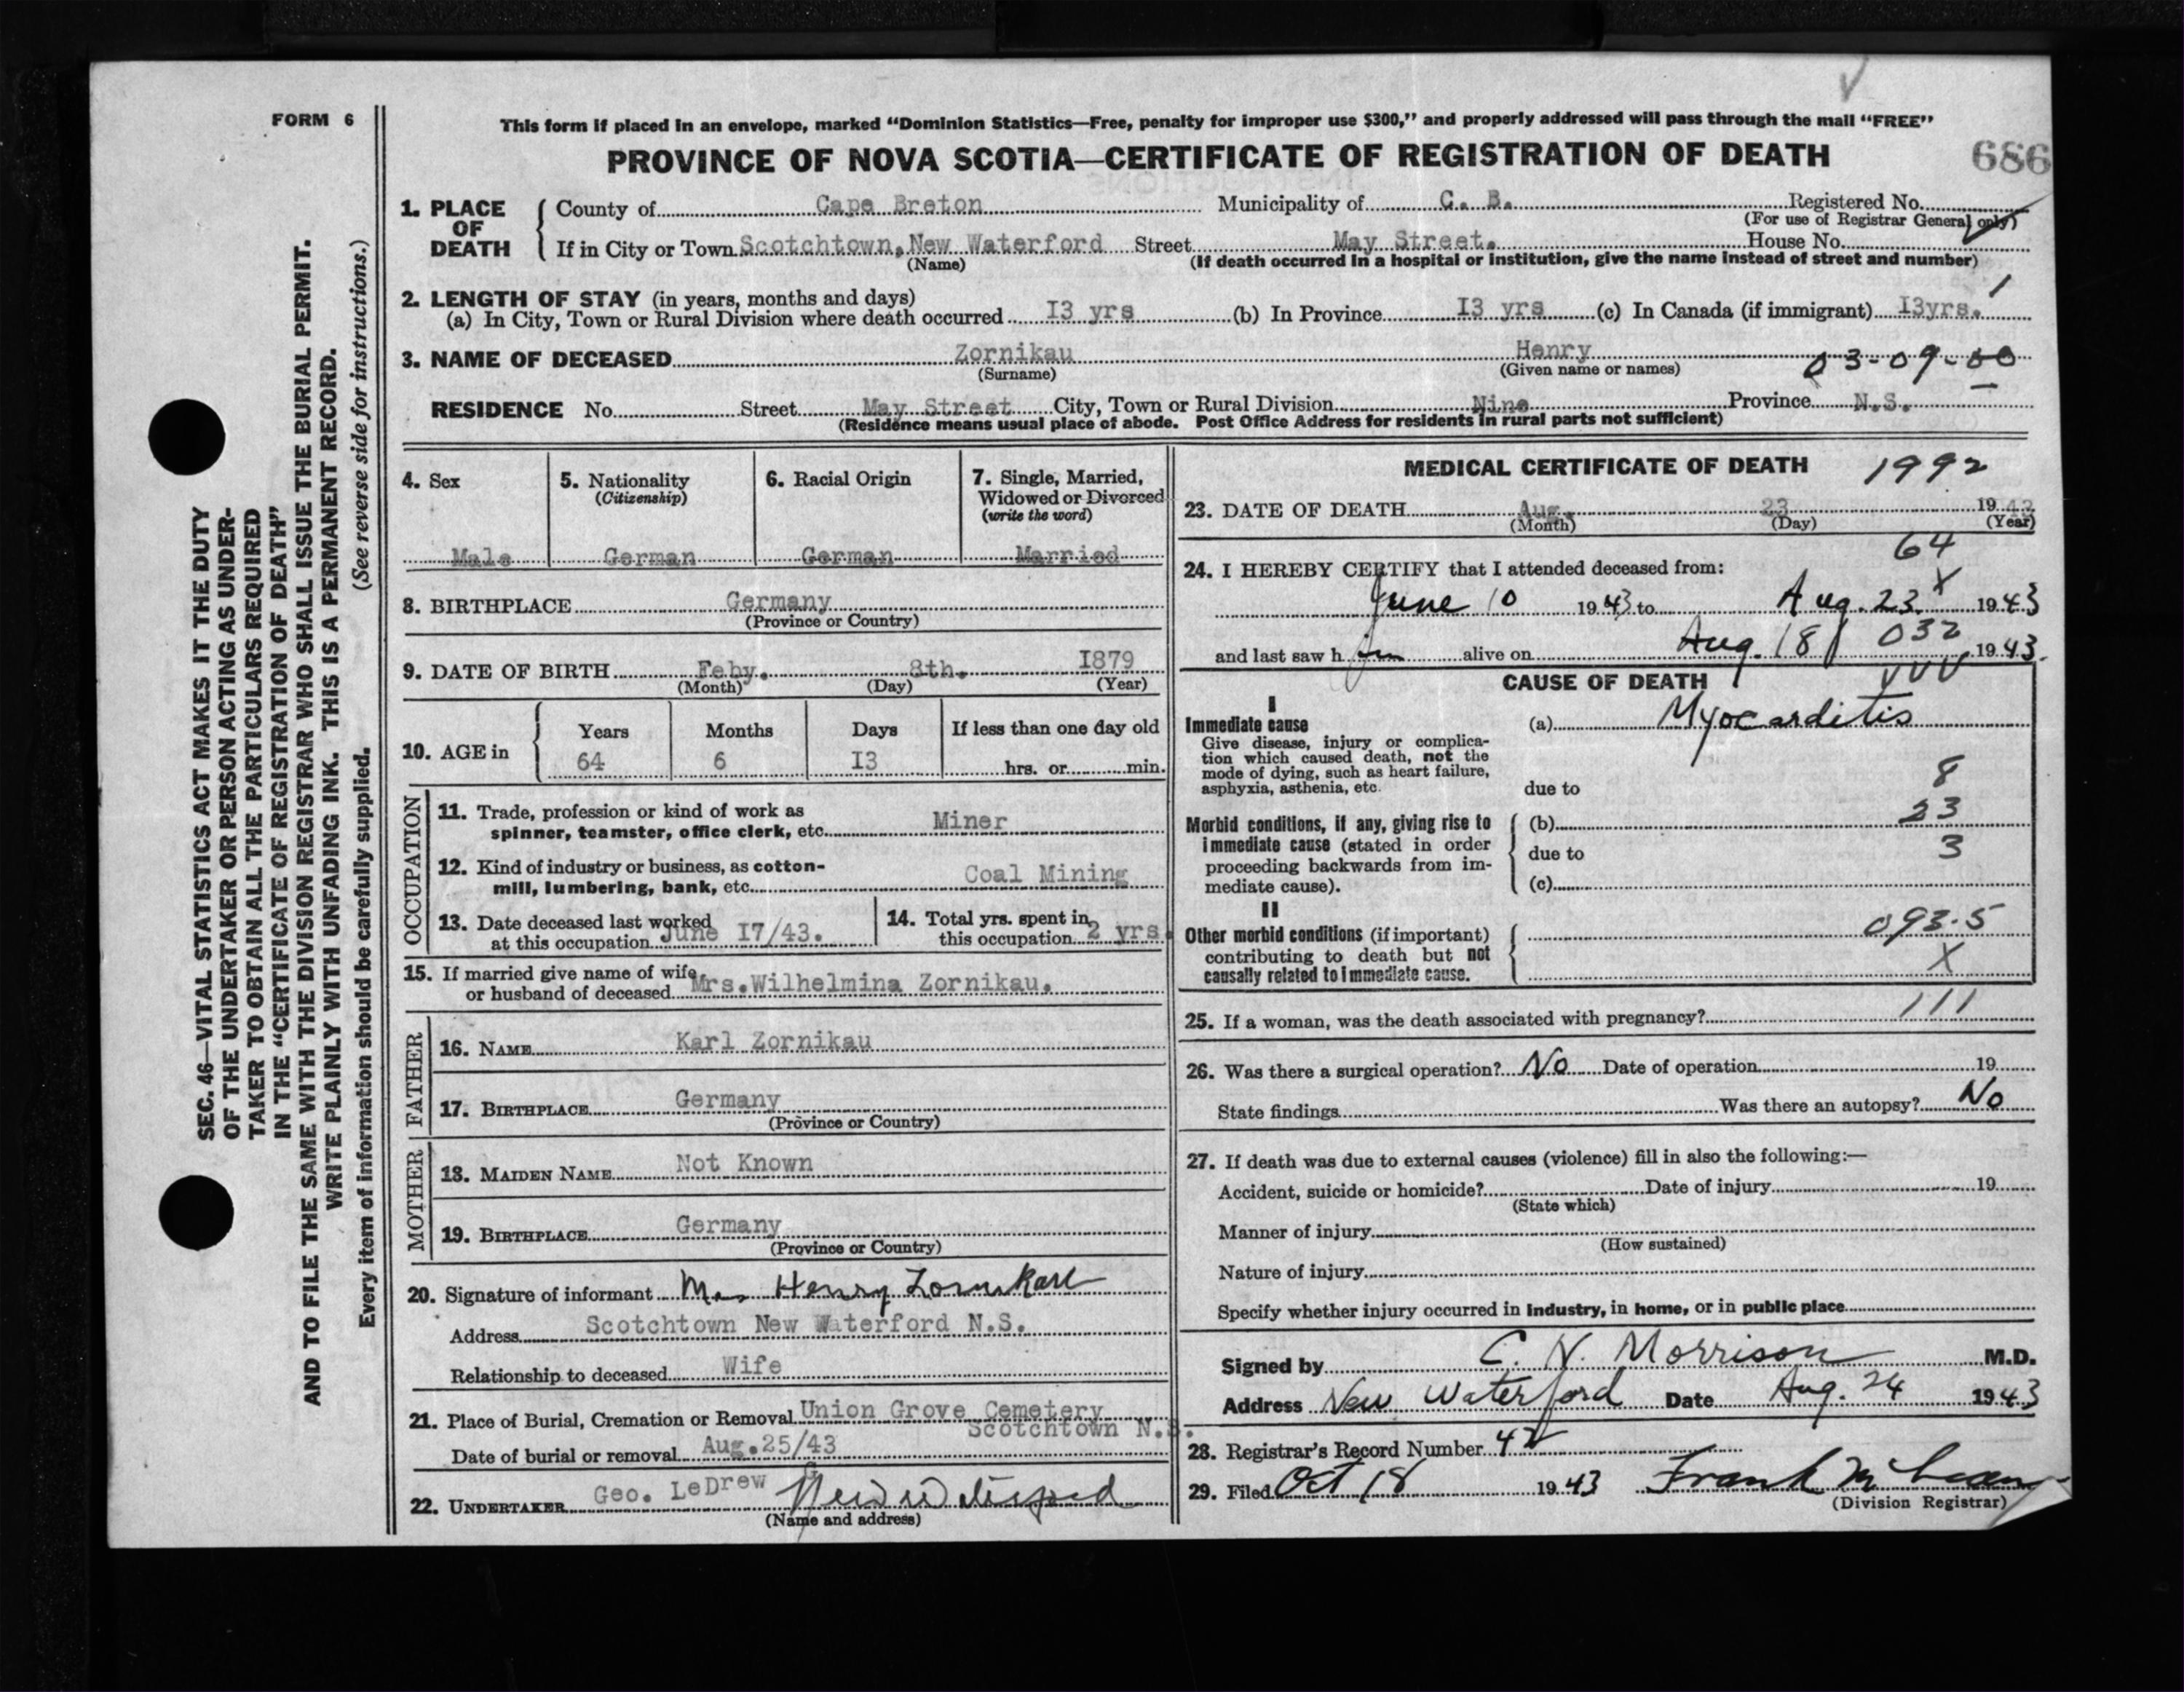 FORM 6
This form if placed in an envelope, marked “Dominion Statistics—Free, penalty for improper use $300,” and properly addressed will pass through the mail “FREE”
PROVINCE OF NOVA SCOTIA—CERTIFICATE OF REGISTRATION OF DEATH
686
1. PLACE OF DEATH
County of Cape Breton Municipality of C. B. Registered No.
(For use of Registrar General only)
If in City or Town Scotchtown, New Waterford Street May Street. House No.
(Name) (If death occurred in a hospital or institution, give the name instead of street and number)
1
2. LENGTH OF STAY (in years, months and days)
(a) In City, Town or Rural Division where death occurred I3 yrs (b) In Province I3 yrs (c) In Canada (if immigrant) I3yrs.
3. NAME OF DECEASED Zornikau Henry 03-09-00
(Surname) (Given name or names)
RESIDENCE No. Street May Street City, Town or Rural Division Nine Province N.S.
(Residence means usual place of abode. Post Office Address for residents in rural parts not sufficient)
4. Sex
Male
5. Nationality
(Citizenship)
German
6. Racial Origin
German
7. Single, Married,
Widowed or Divorced
(write the word)
Married
8. BIRTHPLACE Germany
(Province or Country)
9. DATE OF BIRTH Feby. 8th. I879
(Month) (Day) (Year)
10. AGE in
Years Months Days If less than one day old
64 6 I3 hrs. or min.
OCCUPATION
11. Trade, profession or kind of work as
spinner, teamster, office clerk, etc. Miner
12. Kind of industry or business, as cotton-
mill, lumbering, bank, etc. Coal Mining
13. Date deceased last worked
at this occupation June I7/43.
14. Total yrs. spent in
this occupation 2 yrs.
15. If married give name of wife
or husband of deceased Mrs.Wilhelmina Zornikau.
FATHER
16. NAME Karl Zornikau
17. BIRTHPLACE Germany
(Province or Country)
MOTHER
18. MAIDEN NAME Not Known
19. BIRTHPLACE Germany
(Province or Country)
20. Signature of informant Mrs Henry Zornikau
Address Scotchtown New Waterford N.S.
Relationship to deceased Wife
21. Place of Burial, Cremation or Removal Union Grove Cemetery
Scotchtown N.S.
Date of burial or removal Aug.25/43
22. UNDERTAKER Geo. LeDrew New Waterford
(Name and address)
MEDICAL CERTIFICATE OF DEATH 1992
23. DATE OF DEATH Aug. 23 19 43
(Month) (Day) (Year)
64
24. I HEREBY CERTIFY that I attended deceased from:
X
June 10 19 43 to Aug. 23 19 43
and last saw h im alive on Aug. 18 032 19 43.
CAUSE OF DEATH
I
Immediate cause
Give disease, injury or complica-
tion which caused death, not the
mode of dying, such as heart failure,
asphyxia, asthenia, etc.
(a) Myocarditis
due to 8
Morbid conditions, if any, giving rise to
immediate cause (stated in order
proceeding backwards from im-
mediate cause).
(b) 23
due to 3
(c)
II
Other morbid conditions (if important)
contributing to death but not
causally related to immediate cause.
093.5
X
111
25. If a woman, was the death associated with pregnancy?
26. Was there a surgical operation? No Date of operation 19
State findings Was there an autopsy? No
27. If death was due to external causes (violence) fill in also the following:—
Accident, suicide or homicide? Date of injury 19
(State which)
Manner of injury
(How sustained)
Nature of injury
Specify whether injury occurred in industry, in home, or in public place
Signed by C. N. Morrison M.D.
Address New Waterford Date Aug. 24 1943
28. Registrar's Record Number 42
29. Filed Oct 18 19 43 Frank McLean
(Division Registrar)
SEC. 46—VITAL STATISTICS ACT MAKES IT THE DUTY
OF THE UNDERTAKER OR PERSON ACTING AS UNDER-
TAKER TO OBTAIN ALL THE PARTICULARS REQUIRED
IN THE “CERTIFICATE OF REGISTRATION OF DEATH”
AND TO FILE THE SAME WITH THE DIVISION REGISTRAR WHO SHALL ISSUE THE BURIAL PERMIT.
WRITE PLAINLY WITH UNFADING INK. THIS IS A PERMANENT RECORD.
Every item of information should be carefully supplied. (See reverse side for instructions.)